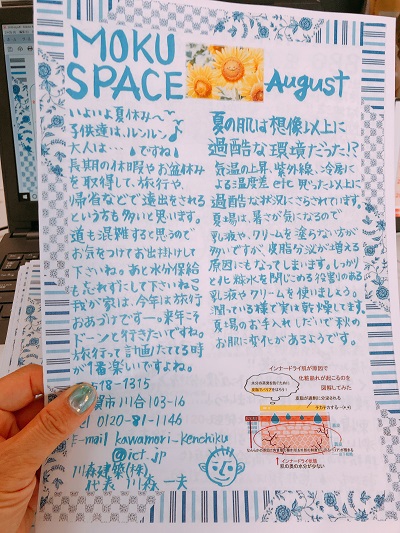 MOKU
SPACE
August
いよいよ夏休み〜
子供達は、ルンルン♪
大人は・・・ですね
長期の休暇やお盆休み
を取得して、旅行や、
帰省などで遠出をされる
という方も多いと思います。
道も混雑すると思うので
お気をつけてお出掛けして
下さいね。あと水分保給
も忘れずにして下さいね
我が家は、今年は旅行
おあづけですー。来年こそ
ドーンと行きたいですね。
旅行って計画たててる時
が1番楽しいですよね。
夏の肌は想像以上に
過酷な環境だった!?
気温の上昇、紫外線、冷房に
よる温度差etc思った以上に
過酷な状況にさらされています。
夏場は、暑さが気になるので
乳液や、クリームを塗らない方が
多いですが、皮脂分泌が増える
原因にもなってしまいます。しっかり
と化粧水を閉じこめる役割のある
乳液やクリームを使いましょう。
潤っている様で実は乾燥してます。
夏場のお手入れしだいで秋の
お肌に変化があるようです。
インナードライ肌が原因で
化粧崩れが起こるのを
図解してみた
皮脂が過剰に分泌される
インナードライ状態
肌の奥の水分が少ない
18-1315
賀市川合103-16
el 0120-81-1146
E-mail kawamori-kenchiku
@ict.jp
川森建築(株)
代表 川森一夫